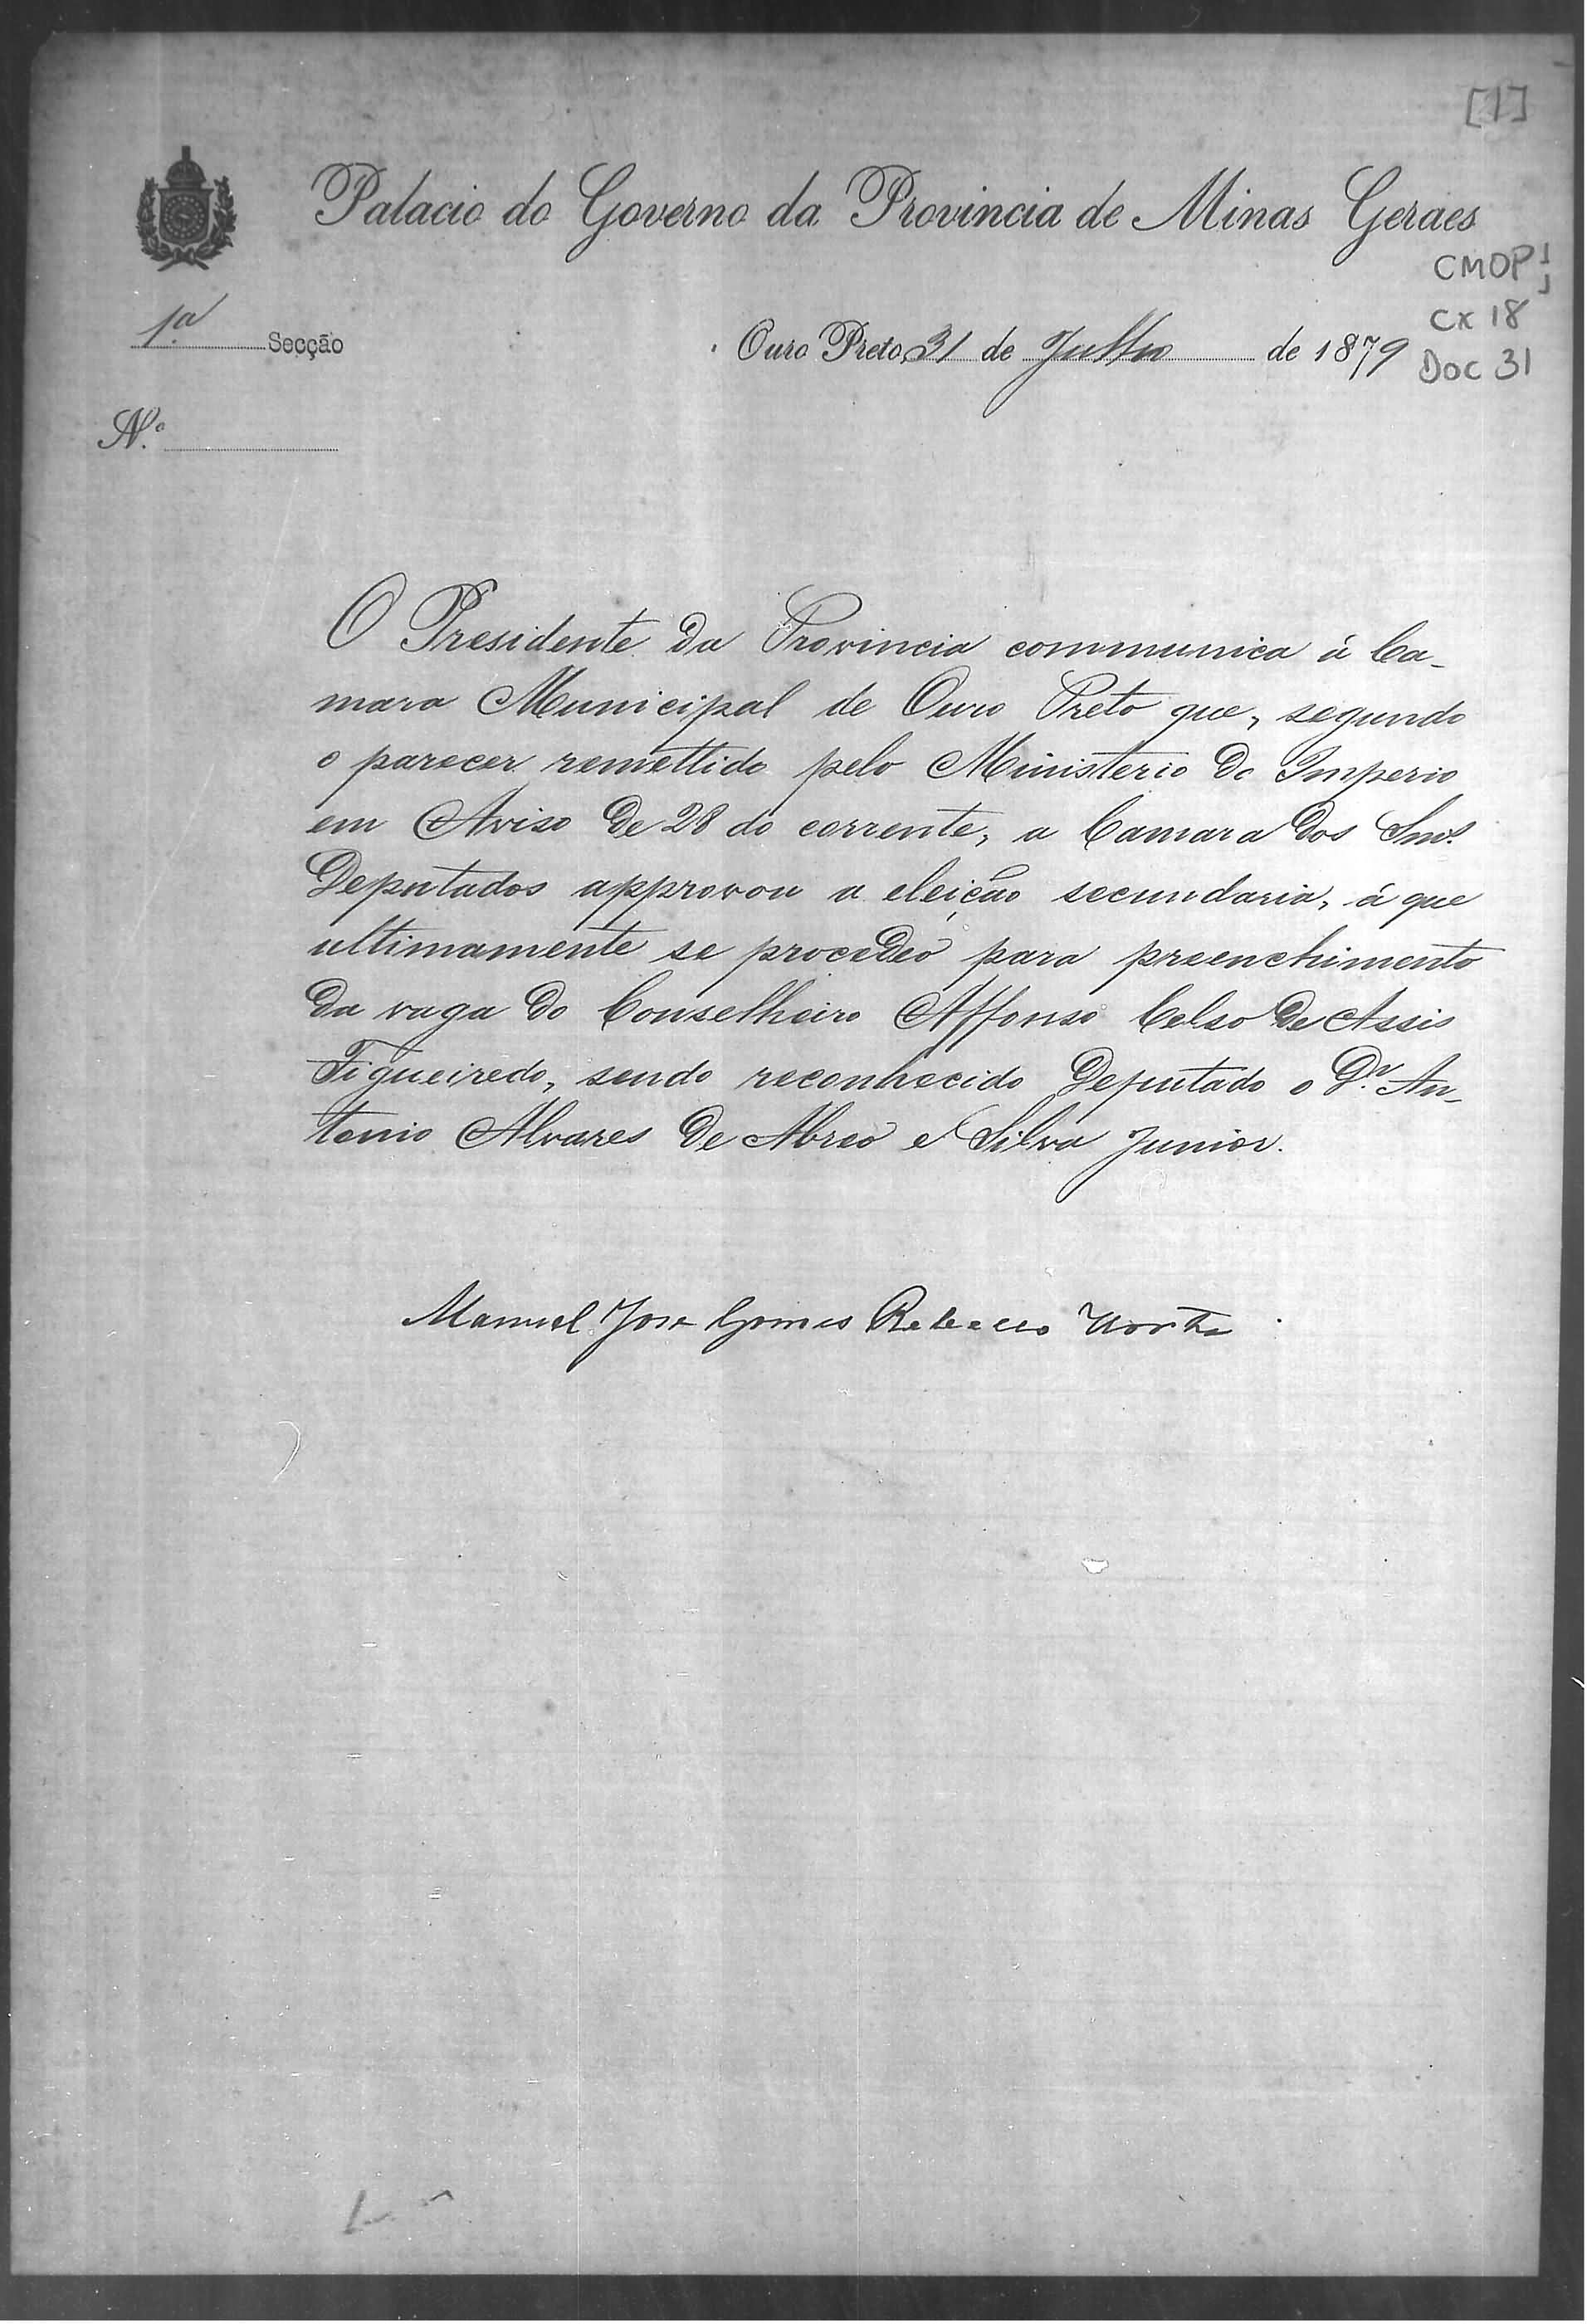 [1]
Palacio do Governo da Provincia de Minas Geraes
CMOP
1.ª Secção
Cx 18
Ouro Preto, 31 de Julho de 1879
Doc 31
N.º
O Presidente da Provincia communica á Ca-
mara Municipal de Ouro Preto que, segundo
o parecer remettido pelo Ministerio do Imperio
em Aviso de 28 do corrente, a Camara dos Snr.s
Deputados approvou a eleição secundaria, á que
ultimamente se procedeo para preenchimento
da vaga do Conselheiro Affonso Celso de Assis
Figueiredo, sendo reconhecido Deputado o D.r An-
tonio Alvares de Abreo e Silva Junior.
Manuel Jose Gomes Rebello Horta